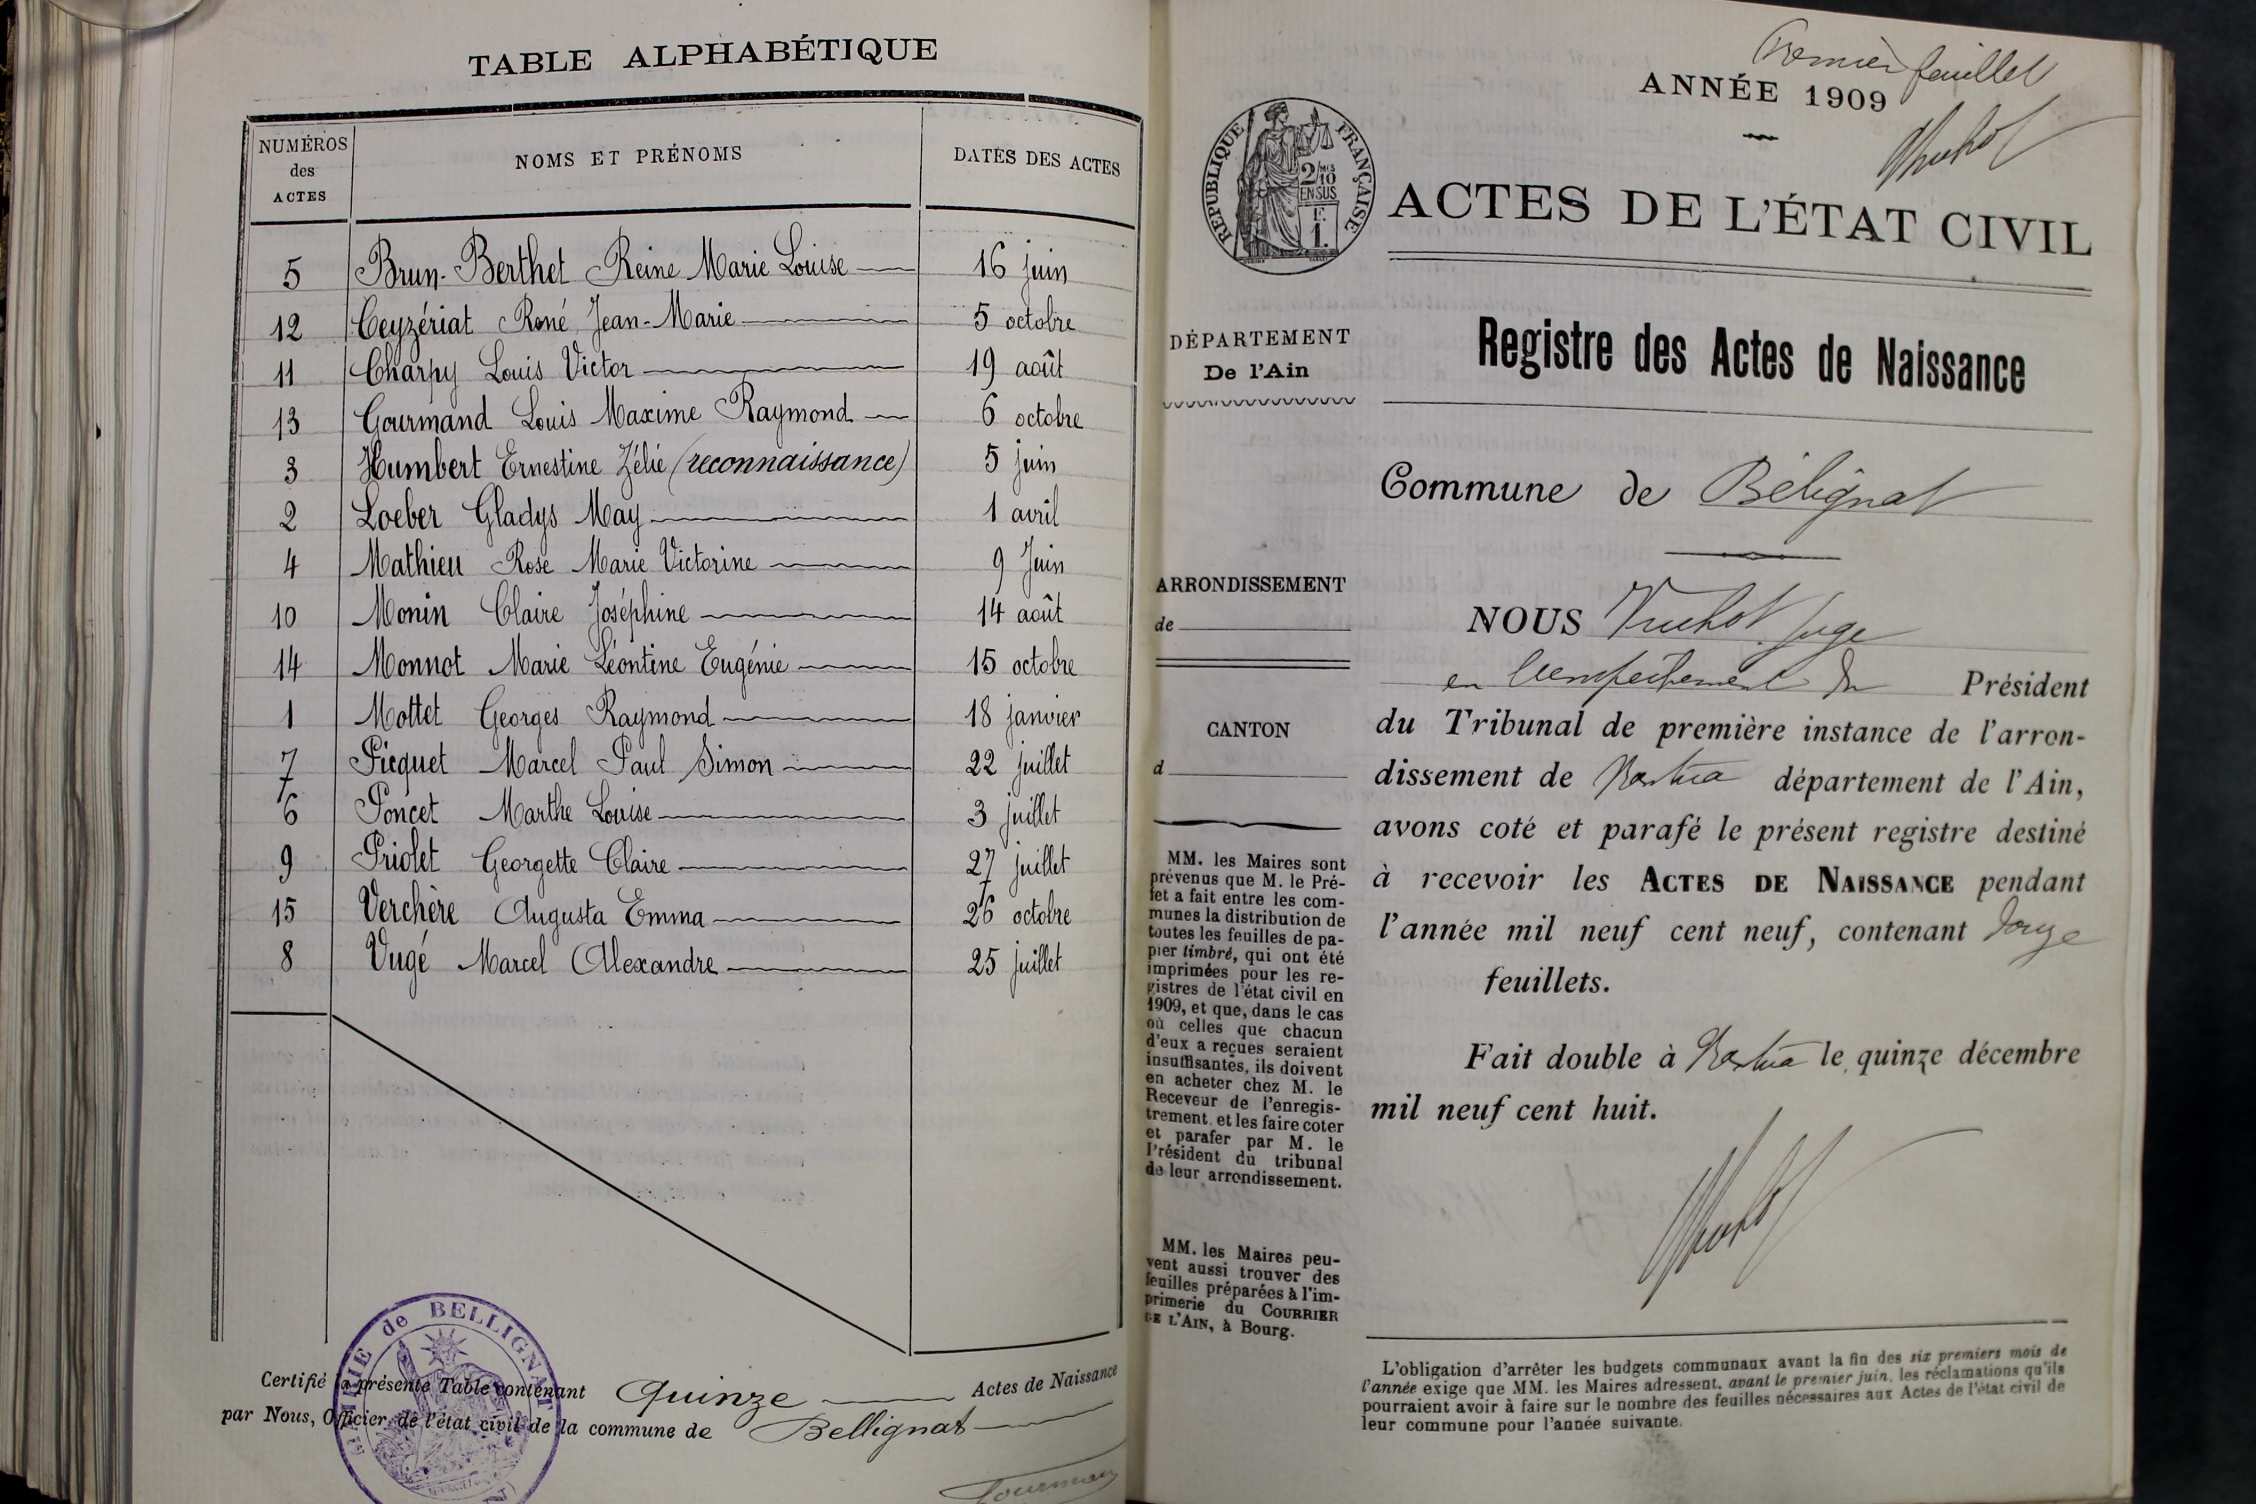 TABLE ALPHABÉTIQUE
NUMÉROS des ACTES NOMS ET PRÉNOMS DATES DES ACTES
5 Brun-Berthet Reine Marie Louise 16 juin
12 Ceyzériat René Jean-Marie 5 octobre
11 Charpy Louis Victor 19 août
13 Gourmand Louis Maxime Raymond 6 octobre
3 Humbert Ernestine Zélie (reconnaissance) 5 juin
2 Loeber Gladys May 1 avril
4 Mathieu Rose Marie Victorine 9 Juin
10 Monin Claire Joséphine 14 août
14 Monnot Marie Léontine Eugénie 15 octobre
1 Mottet Georges Raymond 18 janvier
7 Picquet Marcel Paul Simon 22 juillet
6 Poncet Marthe Louise 3 juillet
9 Priolet Georgette Claire 27 juillet
15 Verchère Augusta Emma 26 octobre
8 Vugé Marcel Alexandre 25 juillet
Certifié la présente Table contenant Quinze Actes de Naissance
par Nous, Officier de l'état civil de la commune de Bellignat
MAIRIE de BELLIGNAT
Premier feuillet
ANNÉE 1909
RÉPUBLIQUE FRANÇAISE
2/10
EN SUS
F.
1.
ACTES DE L'ÉTAT CIVIL
DÉPARTEMENT
De l'Ain
ARRONDISSEMENT
de
CANTON
d
MM. les Maires sont
prévenus que M. le Pré-
fet a fait entre les com-
munes la distribution de
toutes les feuilles de pa-
pier timbré, qui ont été
imprimées pour les re-
gistres de l'état civil en
1909, et que, dans le cas
où celles que chacun
d'eux a reçues seraient
insuffisantes, ils doivent
en acheter chez M. le
Receveur de l'enregis-
trement et les faire coter
et parafer par M. le
Président du tribunal
de leur arrondissement.
MM. les Maires peu-
vent aussi trouver des
feuilles préparées à l'im-
primerie du COURRIER
DE L'AIN, à Bourg.
Registre des Actes de Naissance
Commune de Bélignat
NOUS Truchot Juge
en l'empêchement du Président
du Tribunal de première instance de l'arron-
dissement de Nantua département de l'Ain,
avons coté et parafé le présent registre destiné
à recevoir les ACTES DE NAISSANCE pendant
l'année mil neuf cent neuf, contenant douze
feuillets.
Fait double à Nantua le quinze décembre
mil neuf cent huit.
L'obligation d'arrêter les budgets communaux avant la fin des six premiers mois de
l'année exige que MM. les Maires adressent, avant le premier juin, les réclamations qu'ils
pourraient avoir à faire sur le nombre des feuilles nécessaires aux Actes de l'état civil de
leur commune pour l'année suivante.